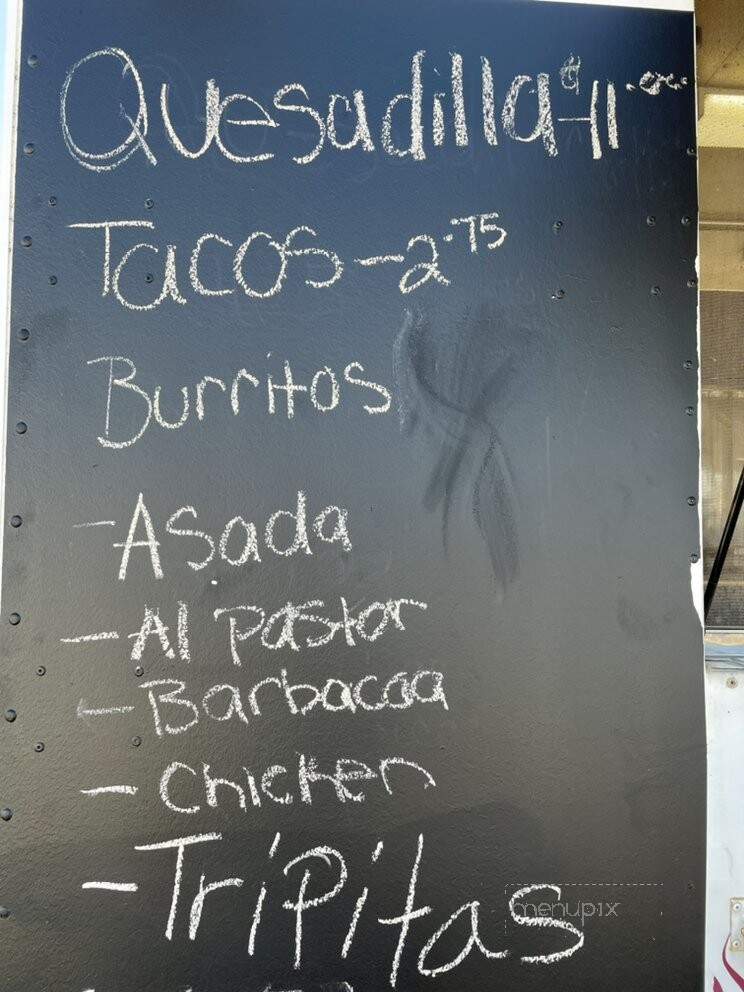 Quesadilla $11.00
Tacos - 2.75
Burritos
- Asada
- Al pastor
- Barbacoa
- Chicken
- Tripitas
menupix